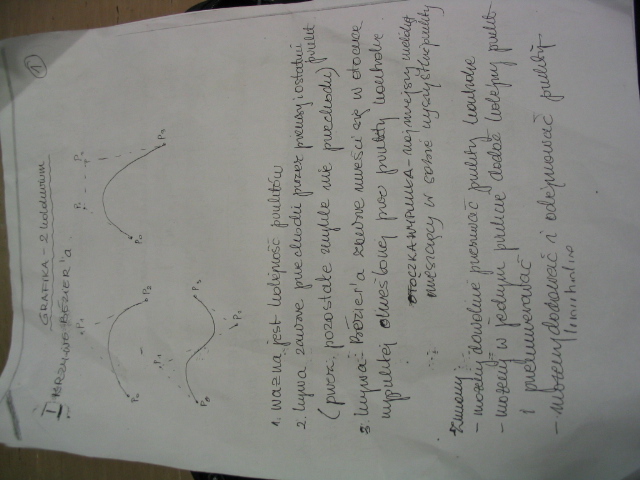 1
GRAFIKA - 2 kolokwium
I KRZYWE BÉZIER'a
P1
P2
P0
P2
P0
P3
P1
P0
P3
P2
1. Ważna jest kolejność punktów
2. krzywa zawsze przechodzi przez pierwszy i ostatni punkt
(pozostałe zwykle nie przechodzi)
3. krzywa Bézier'a zawsze mieści się w otoczce
wypukłej określonej przez punkty kontrolne
OTOCZKA WYPUKŁA - najmniejszy wielokąt
mieszczący w sobie wszystkie punkty
Zmiany:
- możemy dowolnie przesuwać punkty kontrolne
- możemy w jednym punkcie dodać kolejny punkt
i przenumerować
- możemy dodawać i odejmować punkty